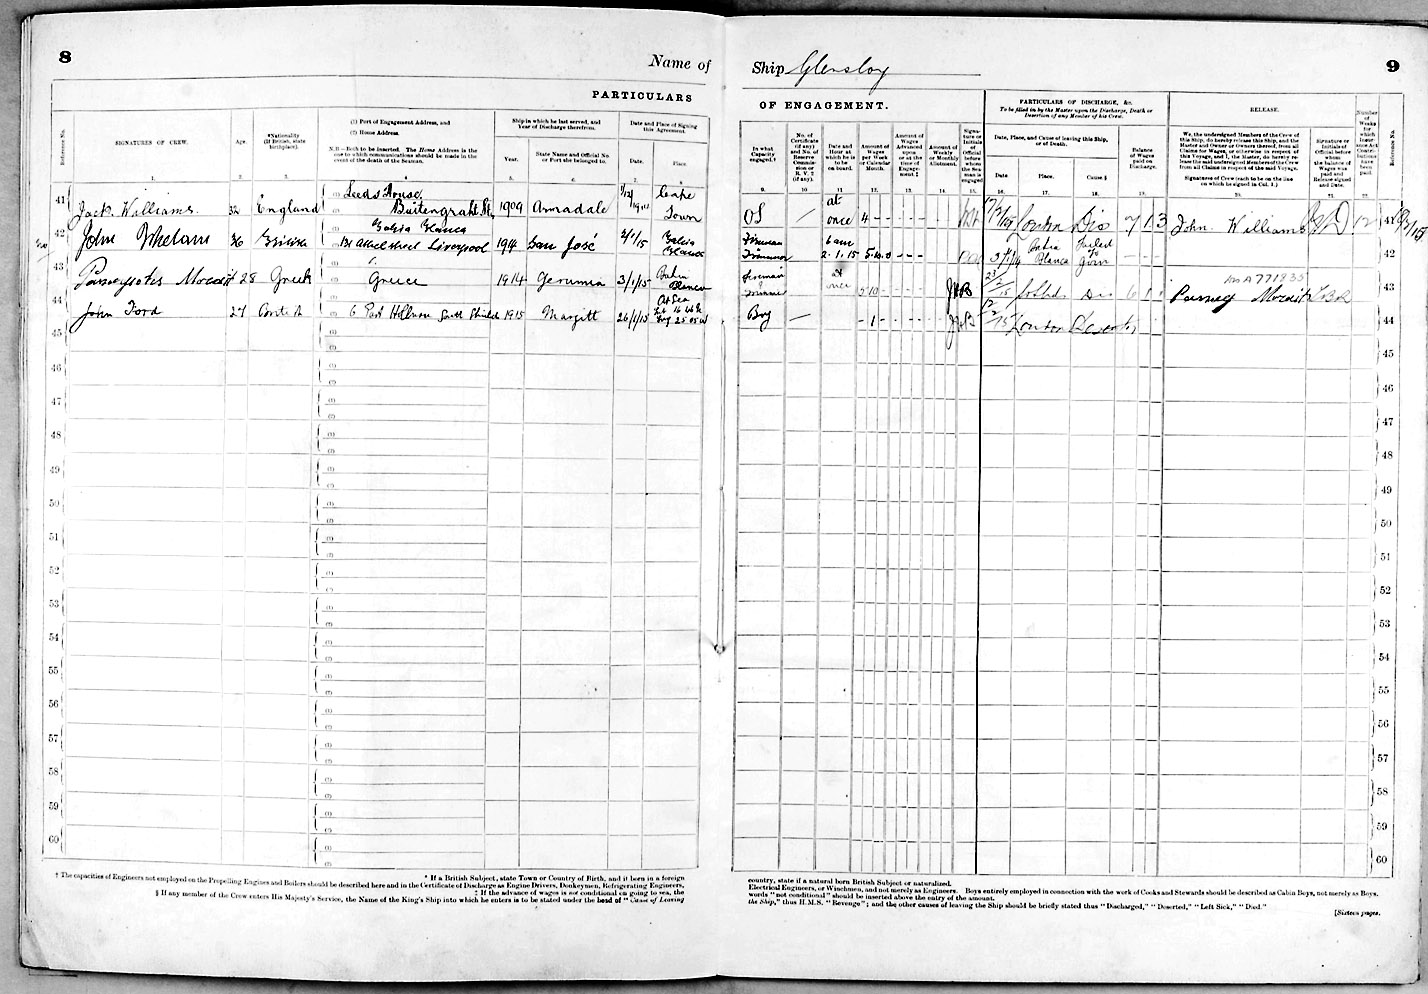 8
Name of
PARTICULARS
Reference No.
SIGNATURES OF CREW.
Age.
*Nationality
(If British, state
birthplace).
(1) Port of Engagement Address, and
(2) Home Address.
N.B.—Both to be inserted. The Home Address is the
one to which communications should be made in the
event of the death of the Seaman.
Ship in which he last served, and
Year of Discharge therefrom.
Year.
State Name and Official No.
or Port she belonged to.
Date and Place of Signing
this Agreement.
Date.
Place.
1.
2.
3.
4
5.
6.
7.
8
41
Jack Williams.
32
England
(1) Leeds House,
(2) Buitengracht St.
1909
Armadale
Cape
Town
42
John Whelan
36
Bahia Blanca
Liverpool
1914
San José
2/1/15
Bahia
Blanca
43
28
Greek
Greece
1914
3/1/15
Bahia
Blanca
44
John Ford
27
British
South Shields
1915
26/1/15
At Sea
45
46
47
48
49
50
51
52
53
54
55
56
57
58
59
60
† The capacities of Engineers not employed on the Propelling Engines and Boilers should be described here and in the Certificate of Discharge as Engine Drivers, Donkeymen, Refrigerating Engineers,
* If a British Subject, state Town or Country of Birth, and if born in a foreign
‡ If the advance of wages is not conditional on going to sea, the
§ If any member of the Crew enters His Majesty's Service, the Name of the King's Ship into which he enters is to be stated under the head of "Cause of Leaving
Ship
9
OF ENGAGEMENT.
PARTICULARS OF DISCHARGE, &c.
To be filled in by the Master upon the Discharge, Death or
Desertion of any Member of his Crew.
RELEASE.
Number
of
Weeks
for
which
Insur-
ance Act
Contri-
butions
have
been
paid.
Reference No.
In what
Capacity
engaged.†
No. of
Certificate
(if any)
and No. of
Reserve
Commis-
sion or
R. V. 2
(if any).
Date and
Hour at
which he
is to be
on board.
Amount of
Wages
per Week
or Calendar
Month.
Amount of
Wages
Advanced
upon
or at the
time of
Engage-
ment ‡
Amount of
Weekly
or Monthly
Allotment.
Signa-
ture or
Initials
of
Official
before
whom
the Sea-
man is
engaged
Date, Place, and Cause of leaving this Ship,
or of Death.
Date
Place.
Cause.§
Balance
of Wages
paid on
Discharge.
We, the undersigned Members of the Crew of
this Ship, do hereby release this Ship, and the
Master and Owner or Owners thereof, from all
Claims for Wages, or otherwise in respect of
this Voyage, and I, the Master, do hereby re-
lease the said undersigned Members of the Crew
from all Claims in respect of the said Voyage.
Signatures of Crew (each to be on the line
on which he signed in Col. 1.)
Signature or
Initials of
Official before
whom
the balance of
Wages was
paid and
Release signed
and Date.
9.
10
11
12.
13.
14.
15.
16.
17.
18.
19.
20.
21.
22.
OS
at
once
4
London
Dis
7 1 3
John. Williams
12
41
Fireman
6 am
2.1.15
5.10.0
Bahia
Blanca
Failed
to
Join
42
Fireman
Trimmer
at
once
5 10
43
Boy
1
London
44
45
46
47
48
49
50
51
52
53
54
55
56
57
58
59
60
country, state if a natural born British Subject or naturalized.
Electrical Engineers, or Winchmen, and not merely as Engineers. Boys entirely employed in connection with the work of Cooks and Stewards should be described as Cabin Boys, not merely as Boys.
words "not conditional" should be inserted above the entry of the amount.
the Ship," thus H.M.S. "Revenge"; and the other causes of leaving the Ship should be briefly stated thus "Discharged," "Deserted," "Left Sick," "Died."
[Sixteen pages.